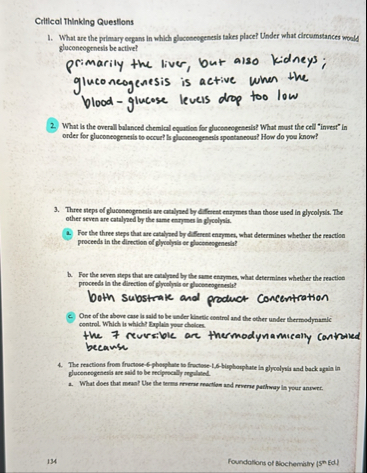 Critical Thinking Questions
1. What are the primary organs in which gluconeogenesis takes place? Under what circumstances would
gluconeogenesis be active?
primarily the liver, but also kidneys;
gluconeogenesis is active when the
blood-glucose levels drop too low
2. What is the overall balanced chemical equation for gluconeogenesis? What must the cell "invest" in
order for gluconeogenesis to occur? Is gluconeogenesis spontaneous? How do you know?
3. Three steps of gluconeogenesis are catalyzed by different enzymes than those used in glycolysis. The
other seven are catalyzed by the same enzymes in glycolysis.
a. For the three steps that are catalyzed by different enzymes, what determines whether the reaction
proceeds in the direction of glycolysis or gluconeogenesis?
b. For the seven steps that are catalyzed by the same enzymes, what determines whether the reaction
proceeds in the direction of glycolysis or gluconeogenesis?
both substrate and product concentration
c. One of the above case is said to be under kinetic control and the other under thermodynamic
control. Which is which? Explain your choices.
the 7 reversible are thermodynamically controlled
because
4. The reactions from fructose-6-phosphate to fructose-1,6-bisphosphate in glycolysis and back again in
gluconeogenesis are said to be reciprocally regulated.
a. What does that mean? Use the terms reverse reaction and reverse pathway in your answer.
134
Foundations of Biochemistry [3rd Ed.]